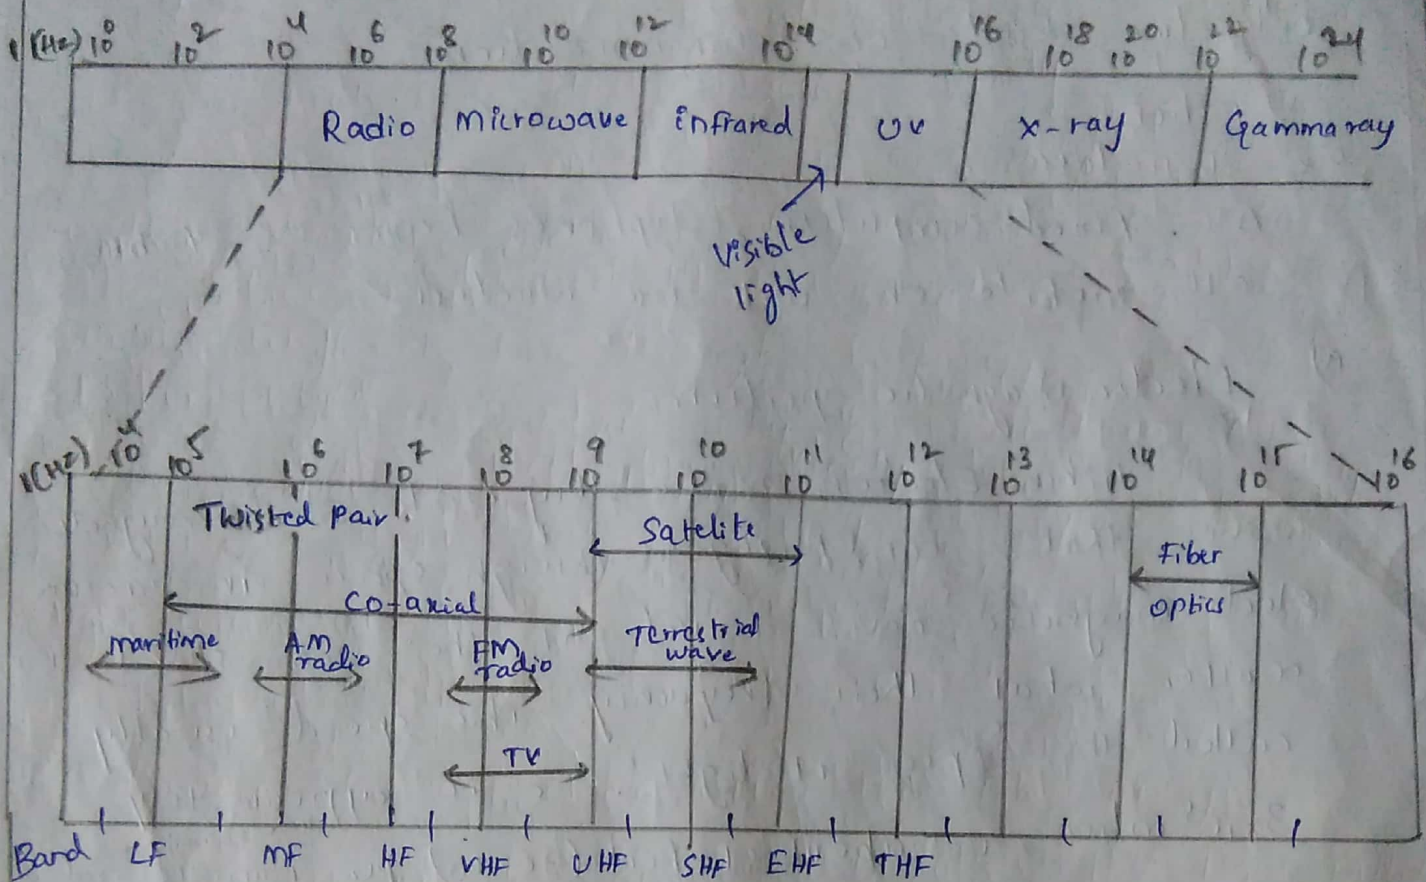 f(Hz) 10⁰ 10² 10⁴ 10⁶ 10⁸ 10¹⁰ 10¹² 10¹⁴ 10¹⁶ 10¹⁸ 10²⁰ 10²² 10²⁴
Radio microwave infrared UV x-ray Gamma ray
Visible
light
f(Hz) 10⁴ 10⁵ 10⁶ 10⁷ 10⁸ 10⁹ 10¹⁰ 10¹¹ 10¹² 10¹³ 10¹⁴ 10¹⁵ 10¹⁶
Twisted Pair
Satelite
Fiber
optics
Co-axial
maritime
AM
radio
FM
radio
Terrestrial
wave
TV
Band LF MF HF VHF UHF SHF EHF THF